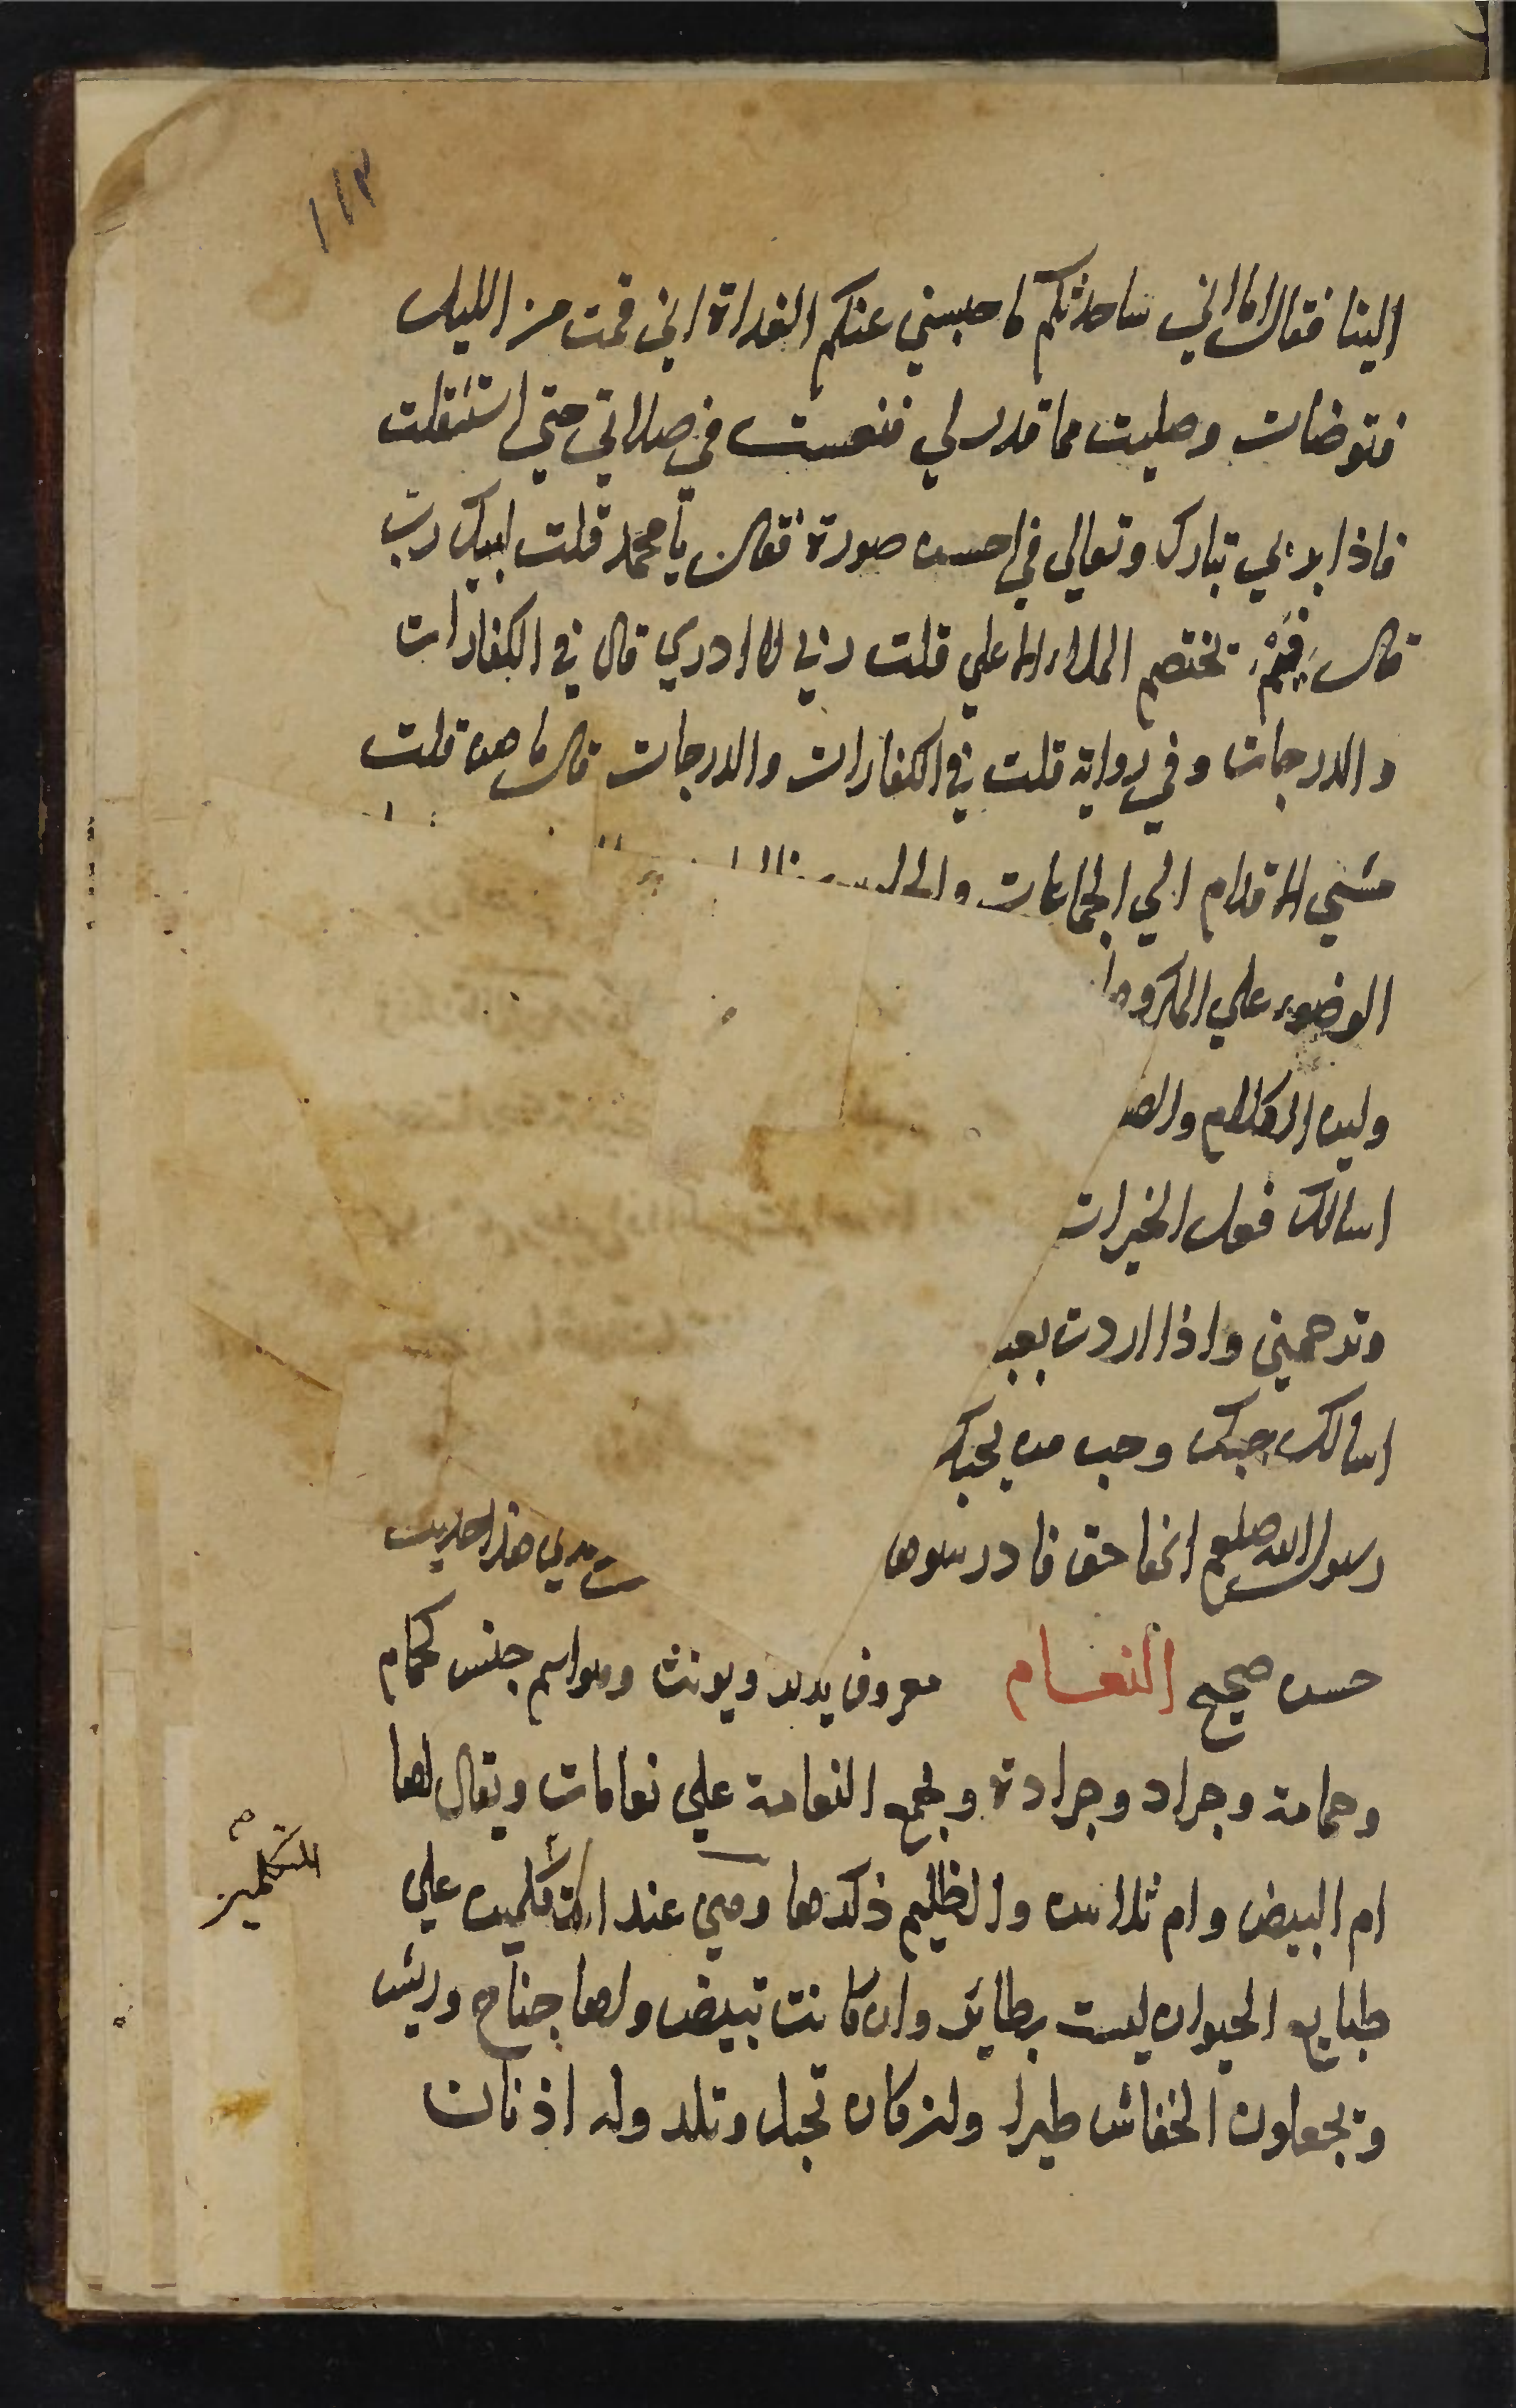 ١١٣
الينا فقال اما اني ساحدثكم ما حبسني عنكم الغداة اني قمت من الليل
فتوضات وصليت مما قدر لي فنعست في صلاتي حتي استثقلت
فاذا بربي تبارك وتعالي في احسن صورة فقال يا محمد قلت لبيك رب
قال فيم تختصم الملاء الاعلي قلت ربي لا ادري قال في الكفارات
والدرجات وفي رواية قلت في الكفارات والدرجات قال ما هن قلت
مشي الاقدام الي الجماعات
الوضوء علي المكروها
ولين الكلام والص
اسالك فعل الخيرات
وترحمني واذا اردت بعبـ
اسالك حبك وحب من يحبك
رسول الله صلعم انها حق فادرسوها ترمدي هذا حديث
حسن صحيح النعام معروف يذكر ويونث وهو اسم جنس كحمام
وحمامة وجراد وجرادة ويجمع النعامة علي نعامات ويقال لها
ام البيض وام ثلاثين والظليم ذكرها وهي عند المتكلمين علي
المتكلمين
طبايع الحيوان ليست بطائر وان كانت تبيض ولها جناح وريش
ويجعلون الخفاش طيرا وان كان تحبل وتلد وله اذنان